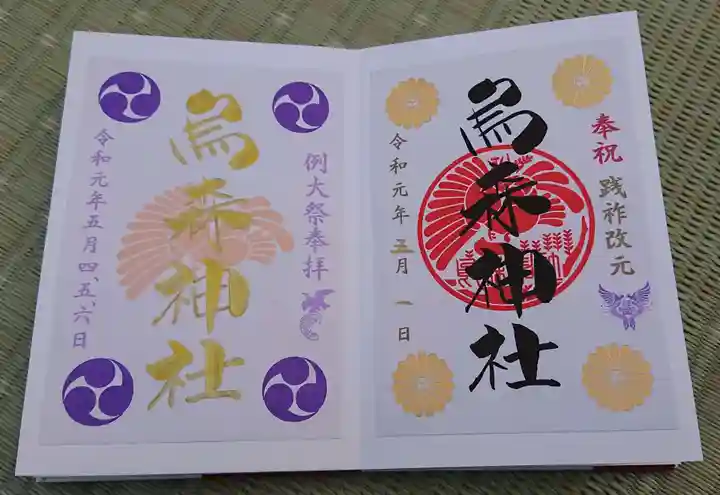 奉祝 践祚改元
烏森神社
令和元年五月一日
例大祭奉拝
烏森神社
令和元年五月四、五、六日